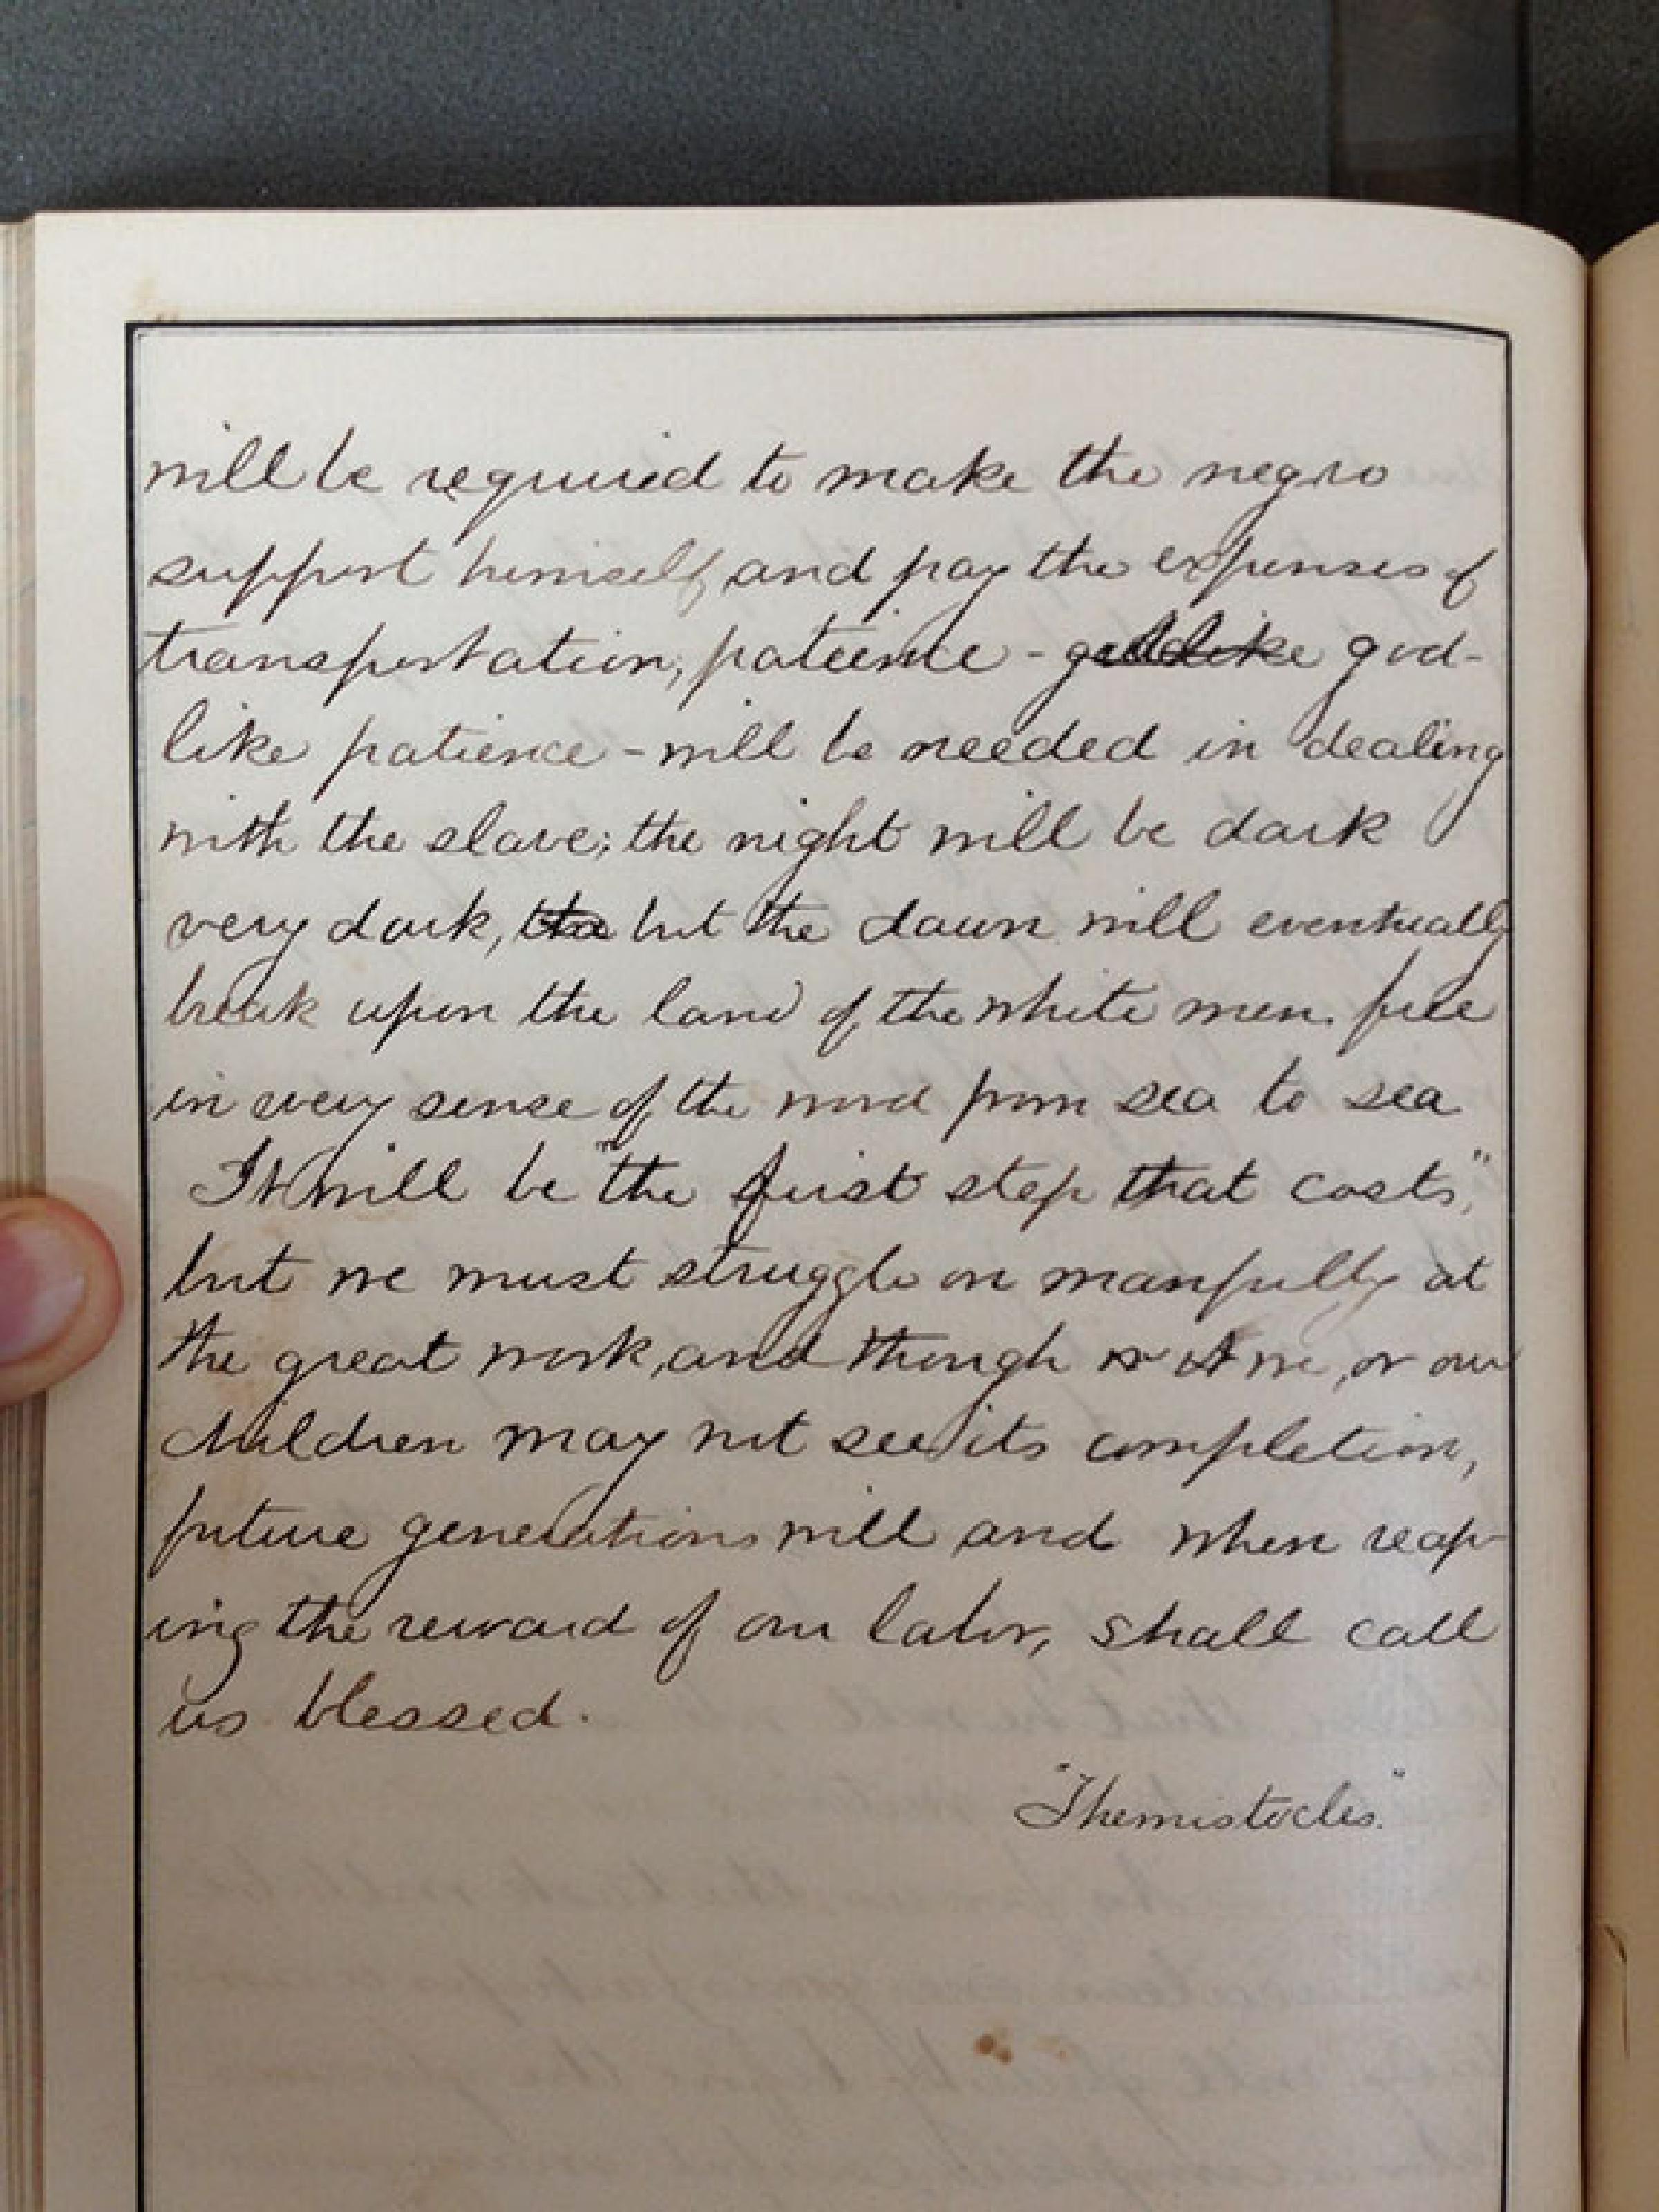 will be required to make the negro
support himself, and pay the expenses of
transportation; patience - godlike god-
like patience - will be needed in dealing
with the slave; the night will be dark
very dark, the but the dawn will eventually
break upon the land of the white men. free
in every sense of the word from sea to sea
It will be "the first step that costs",
but we must struggle on manfully at
the great work, and though we, or our
children may not see its completion,
future generations will and when reap-
ing the reward of our labor, shall call
us blessed.
"Themistocles."